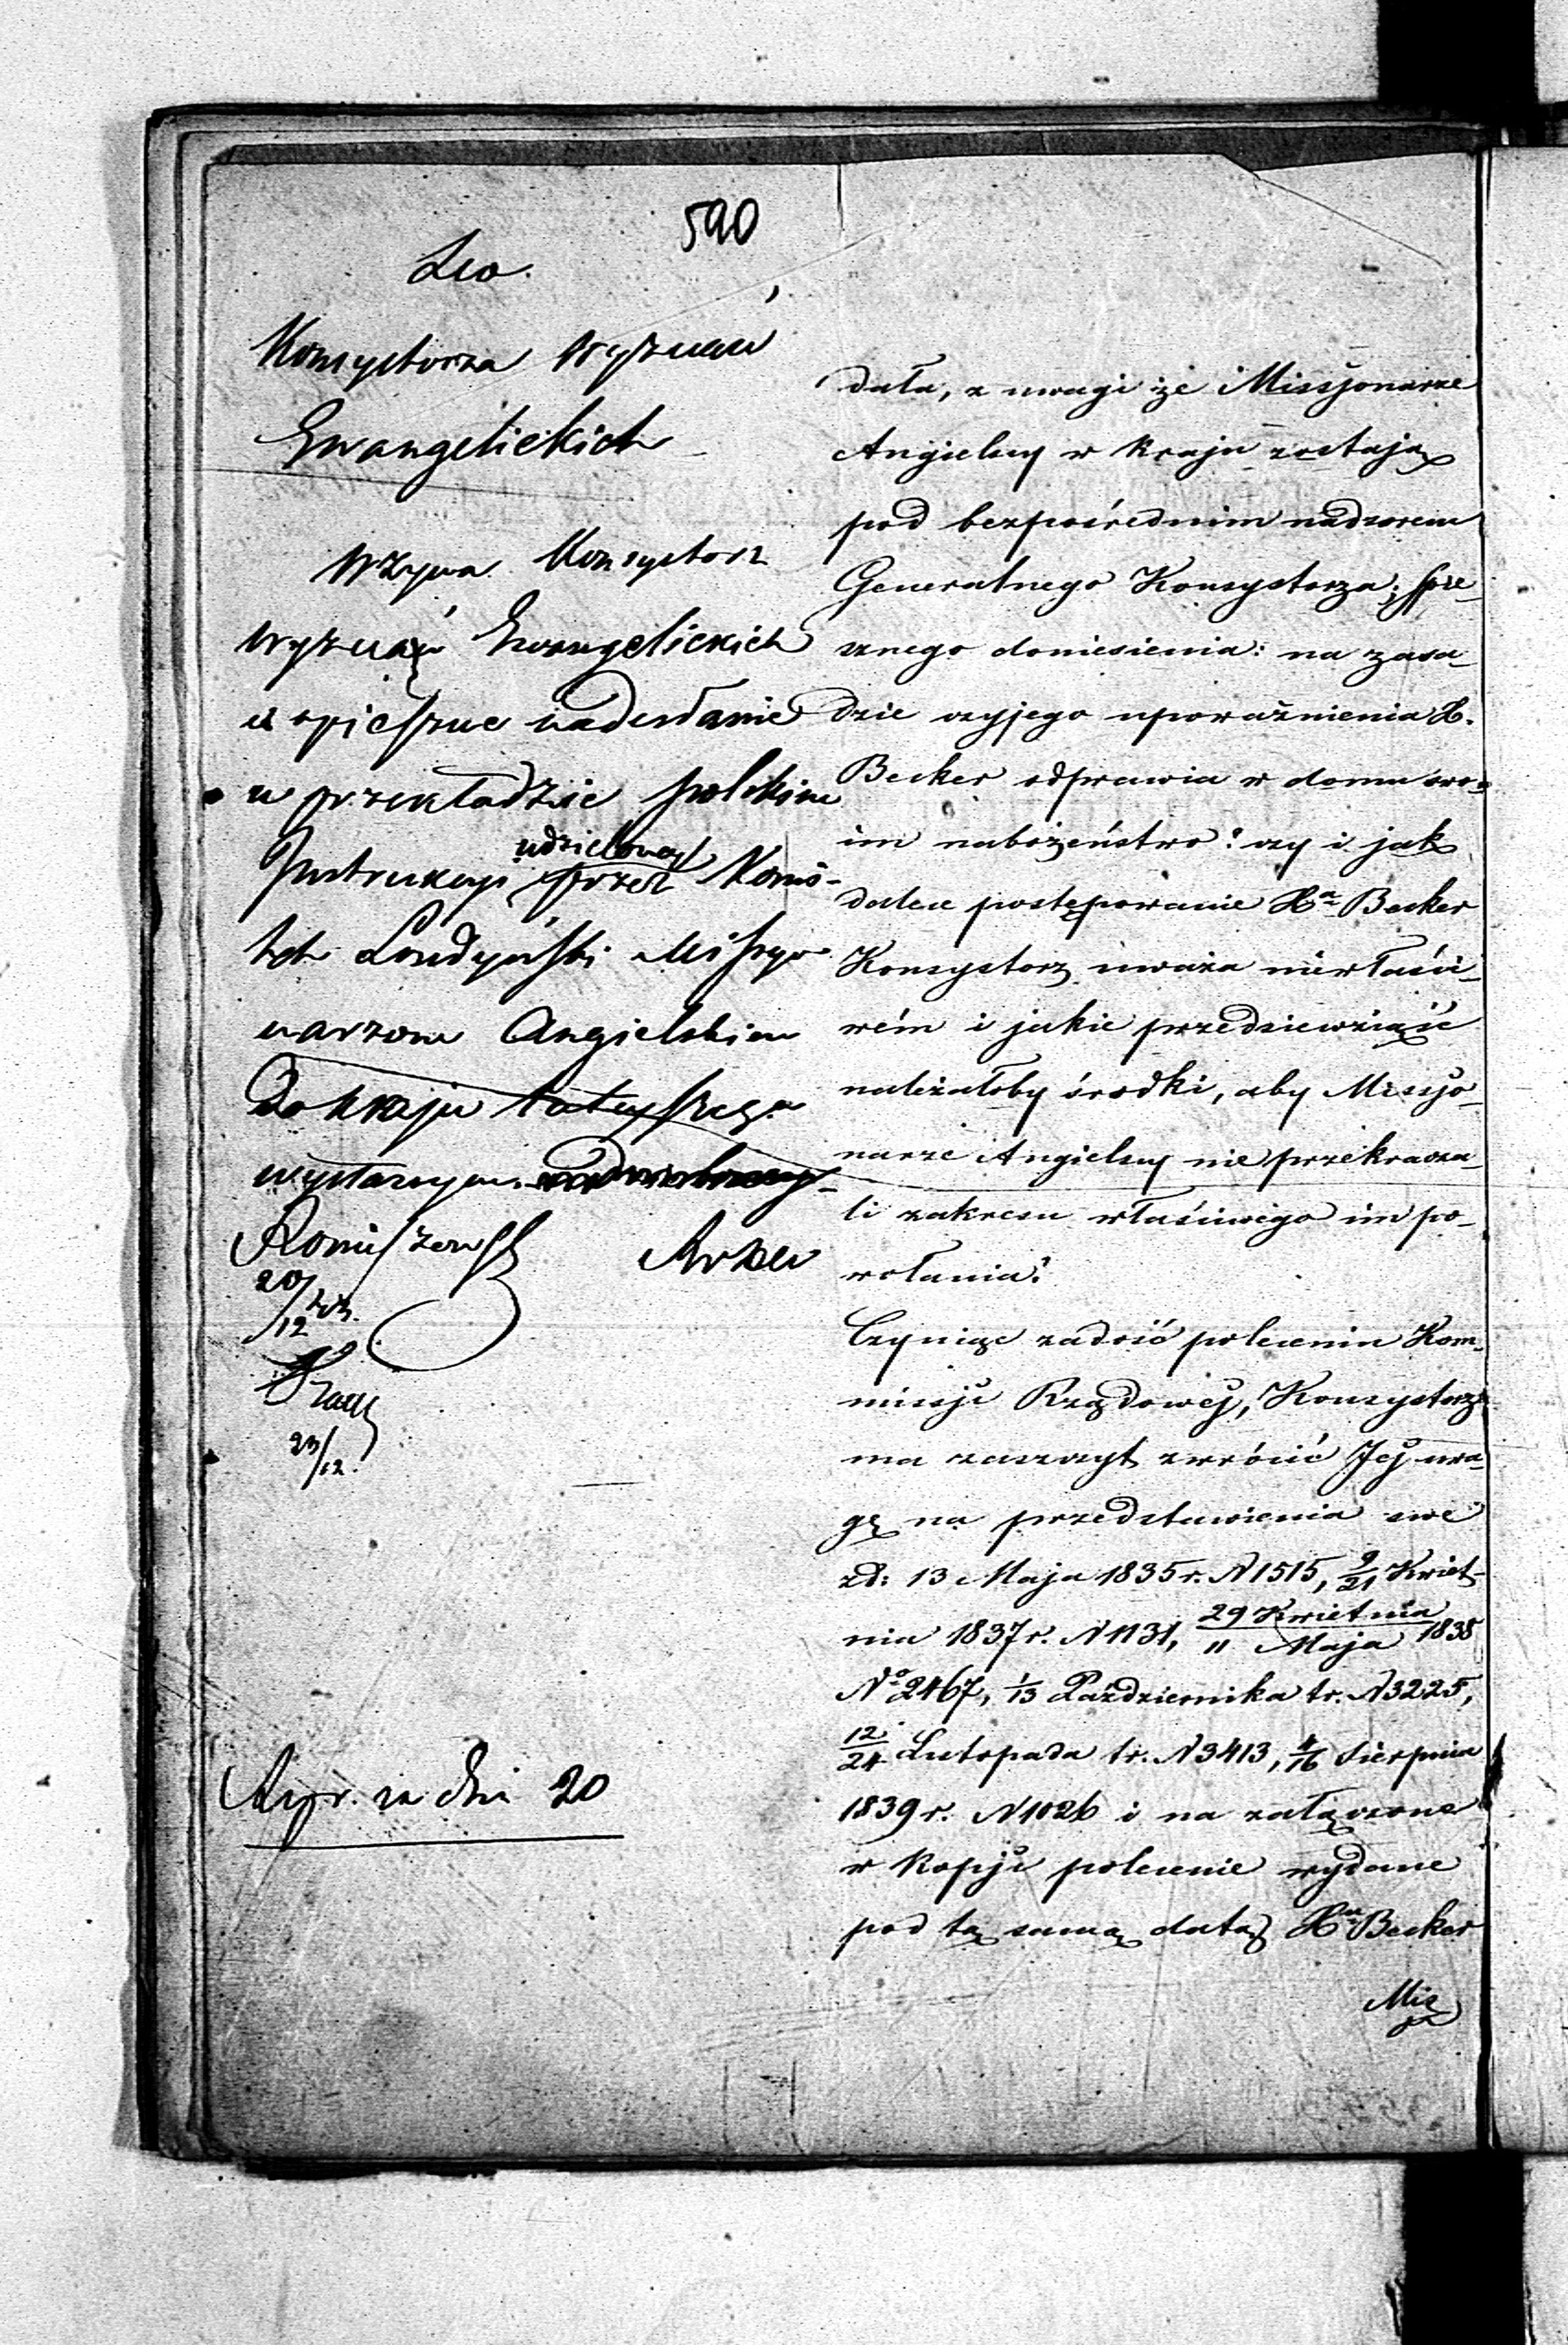 590
Do
Konsystorza Wyznań
Ewangelickich
Wzywa Konsystorz
Wyznań Ewangelickich
o spieszne nadesłanie
w przekładzie polskim
Instrukcyi udzielonej przez Komi-
tet Londyński Missyo
narzom Angielskim
Do kraju tutejszego
wysłanym
20/12
23/12
Expr. za dni 20
dała, z uwagi że Missjonarze
Angielscy w kraju zostają
pod bezpośrednim nadzorem
Generalnego Konsystorza; spie-
sznego doniesienia: na zasa-
dzie czyjego upoważnienia X.
Becker odprawia w domu swo-
im nabożeństwo? czy i jak
dalece postępowanie Xa Becker
Konsystorz uważa niewłaści-
wém i jakie przedsiewziąść
należałoby środki, aby Missjo-
narze Angielscy nie przekracza-
li zakresu właściwego im po-
wołania?
Czyniąc zadość poleceniu Kom-
missji Rządowej, Konsystorz
ma zaszczyt zwrócić Jej uwa-
gę na przedstawienia swe
zd: 13 Maja 1835 r. N 1515, 9/21 Kwiet-
nia 1837 r. N 1131, 29 Kwietnia/11 Maja 1838
No 2467, 1/13 Października tr. N 3225,
12/24 Listopada tr. N 3413, 4/16 Sierpnia
1839 r. N 1026 i na załączone
w kopji polecenie wydane
pod tą samą datą Xu Becker
Mię